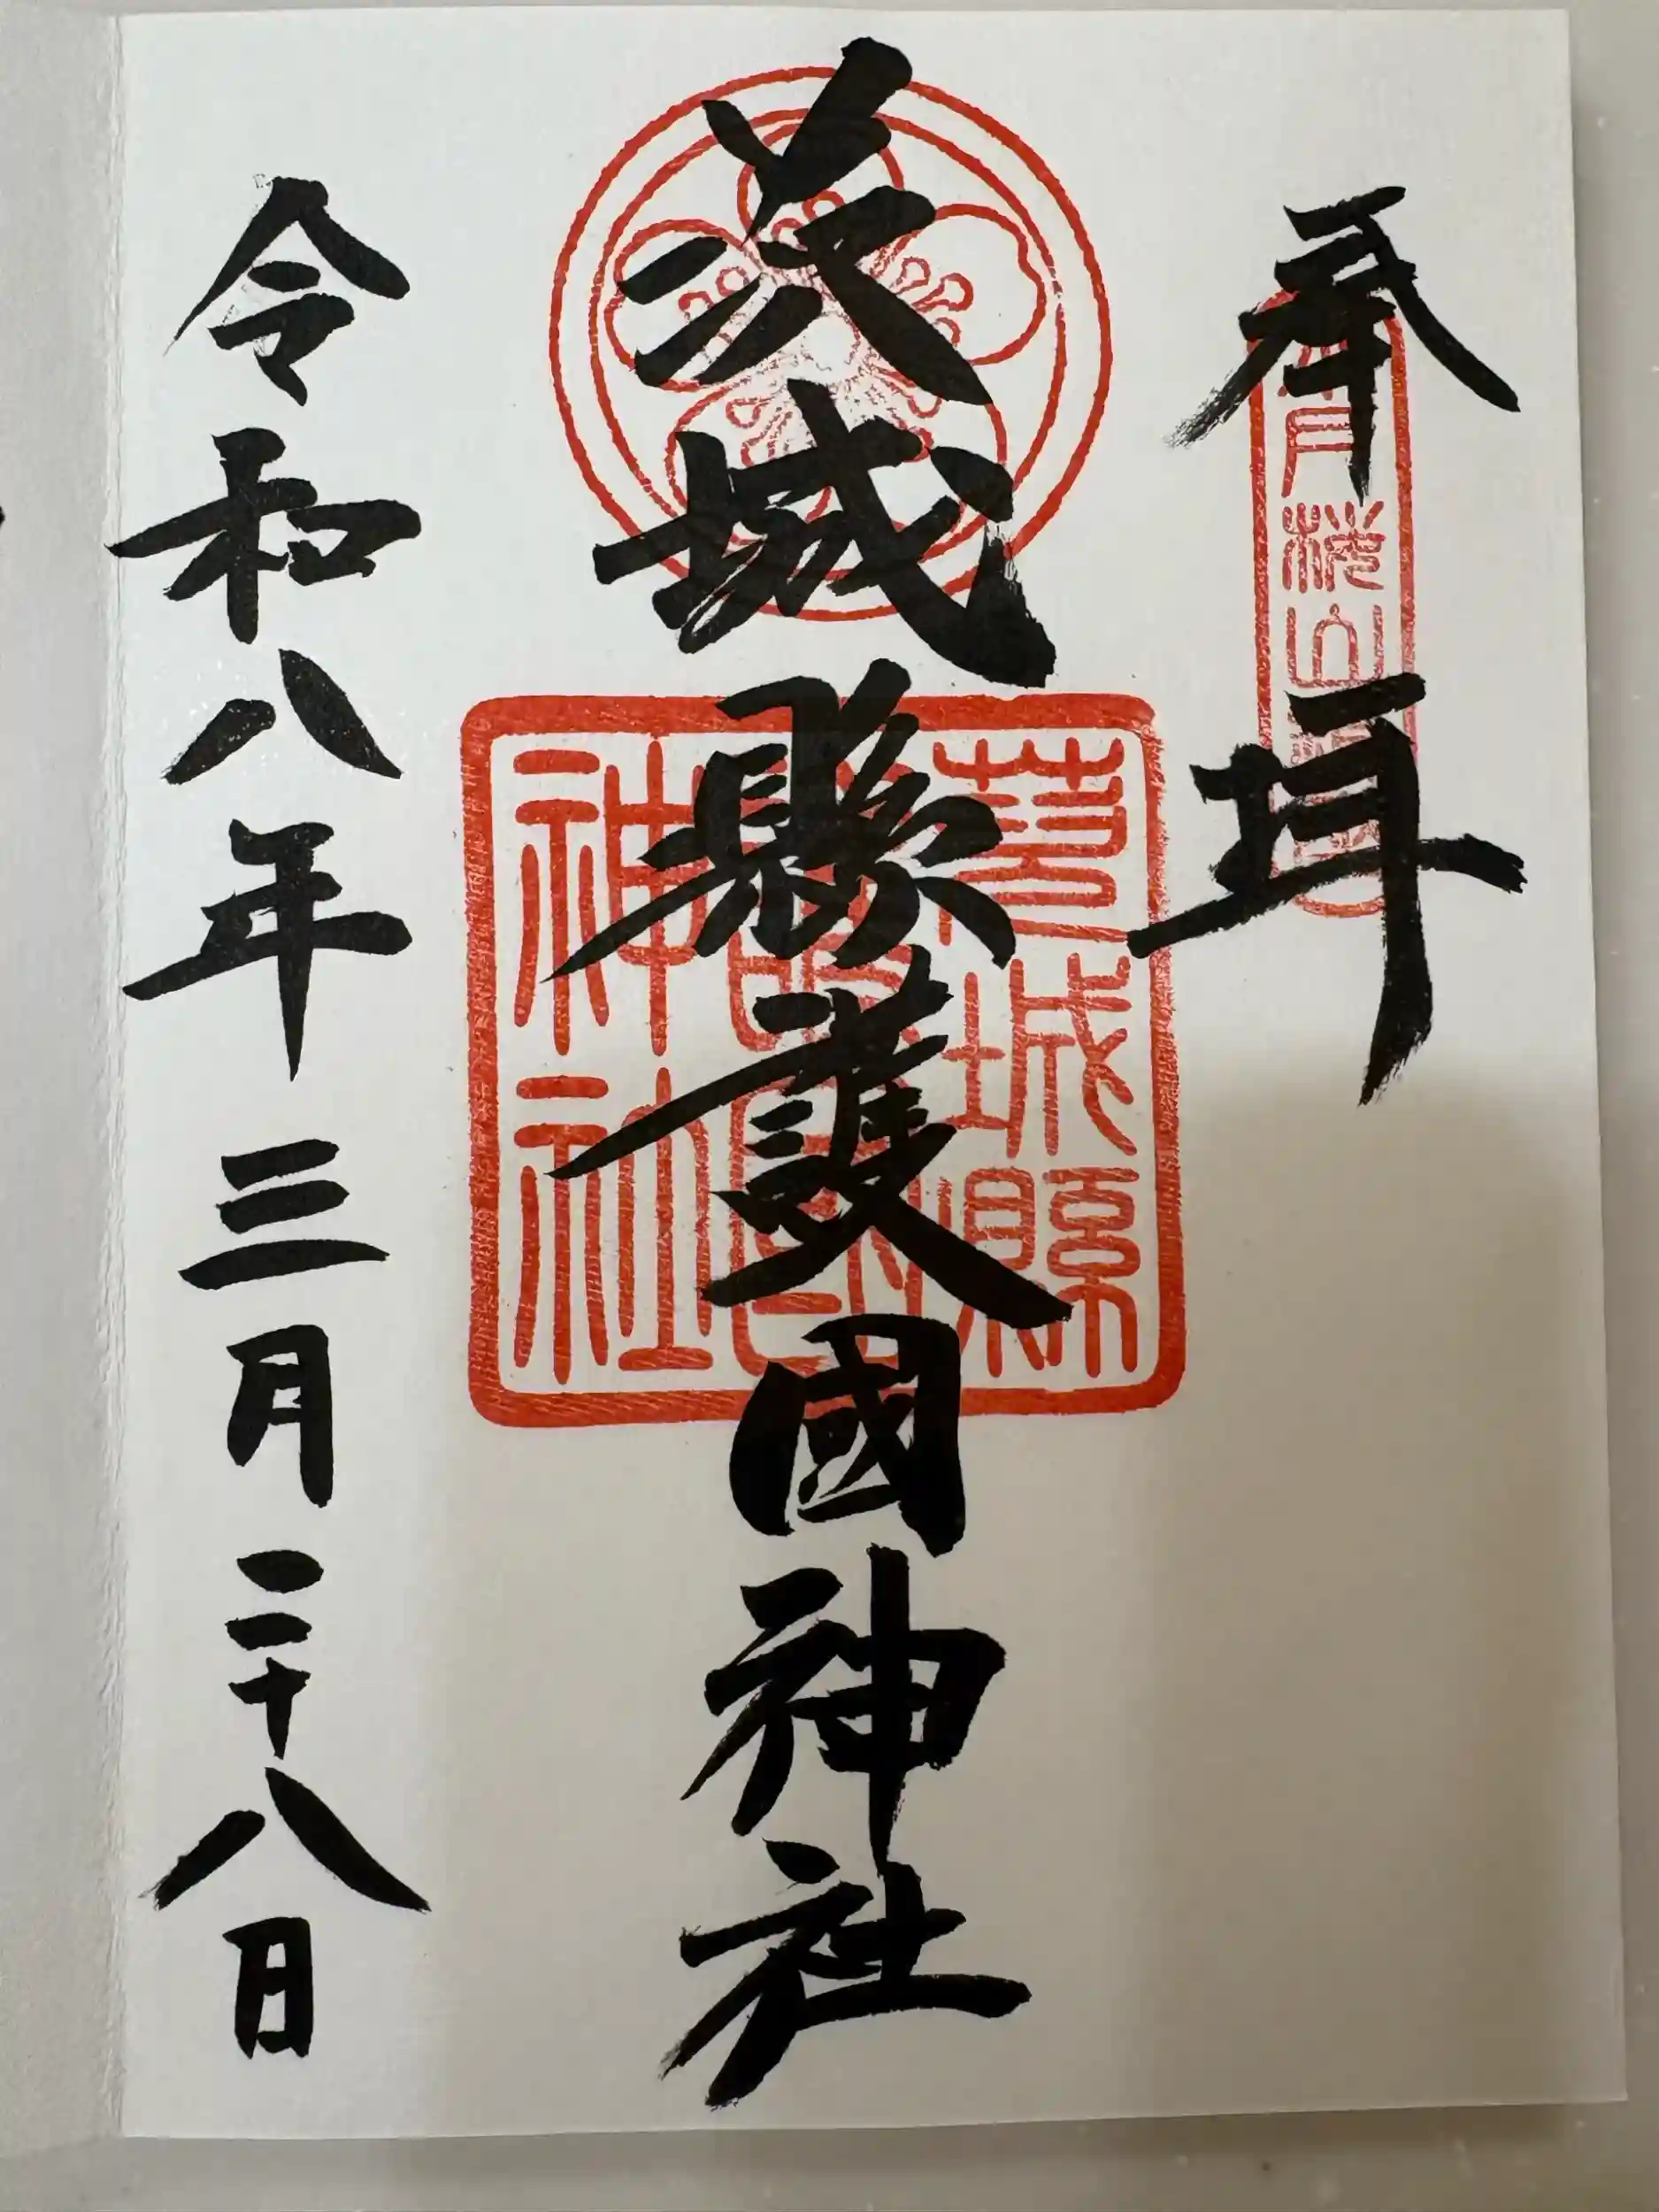 奉拜
茨城縣護國神社
令和八年三月二十八日
茨城縣
護國
神社